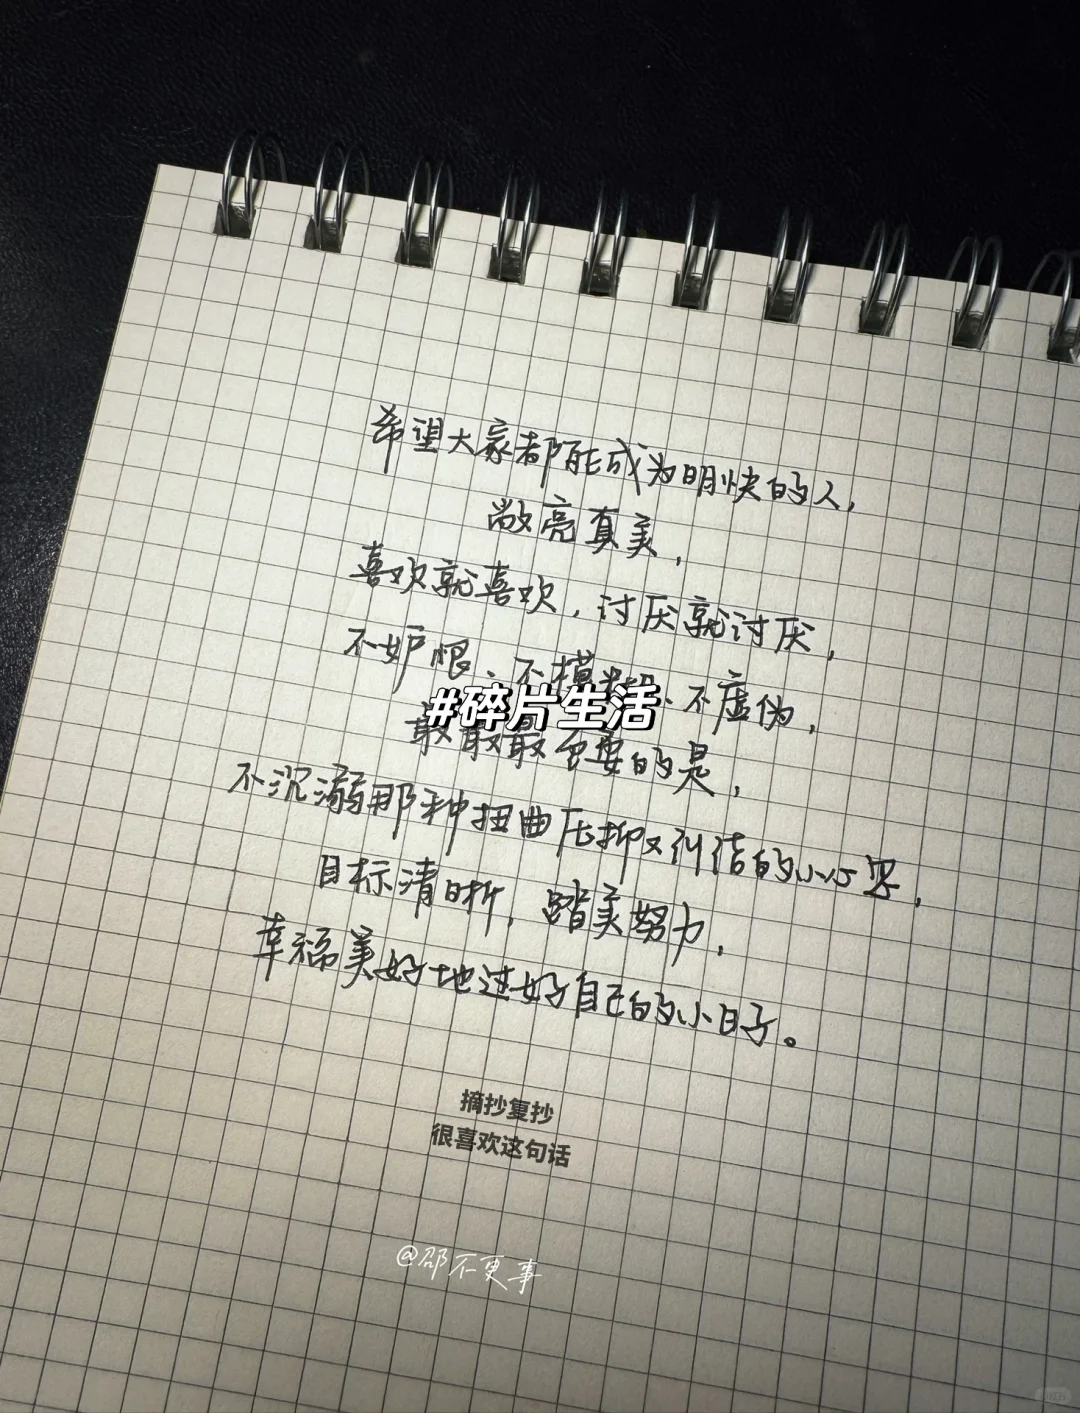 希望大家都能成为明快的人，
敞亮真实，
喜欢就喜欢，讨厌就讨厌，
不妒恨、不模糊、不虚伪，
#碎片生活
最最最重要的是，
不沉溺那种扭曲压抑又纠结的小心思，
目标清晰，踏实努力，
幸福美好地过好自己的小日子。
摘抄复抄
很喜欢这句话
@邵不更事